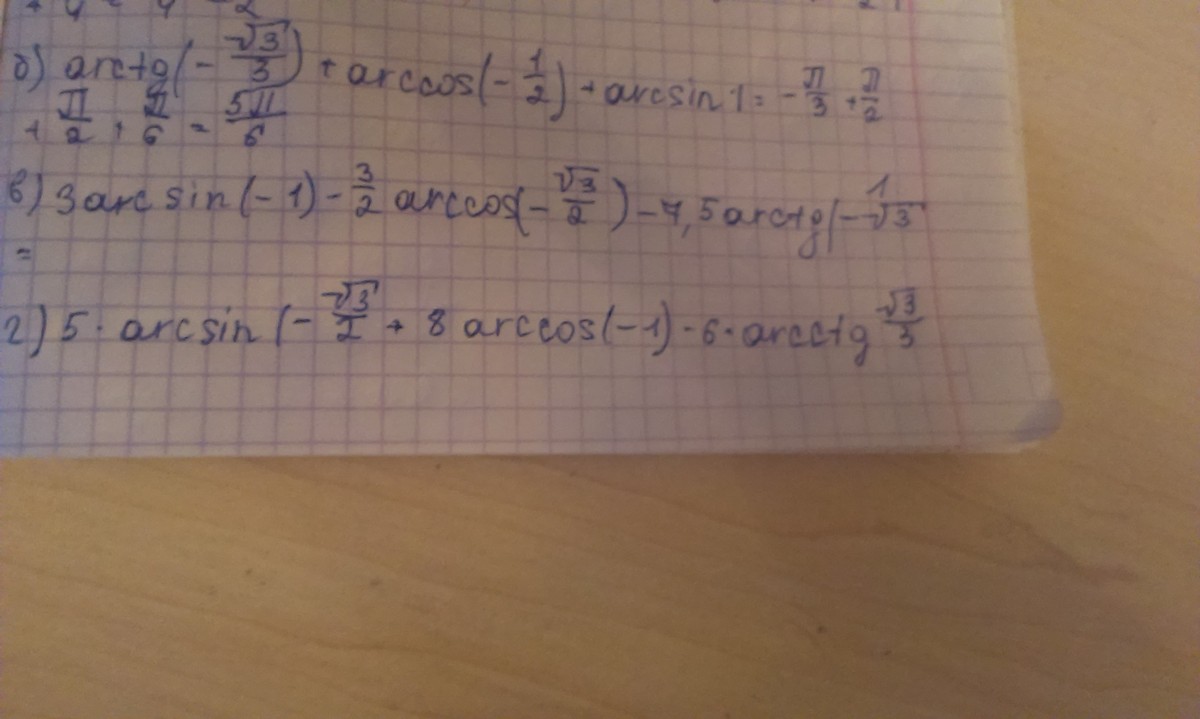 б) arctg(-√3/3) + arccos(-1/2) + arcsin1 = -π/3 + π/2
+ π/2 + π/6 = 5π/6
в) 3arcsin(-1) - 3/2 arccos(-√3/2) - 7,5arctg(-1/√3
=
г) 5·arcsin(-√3/2 + 8 arccos(-1) - 6·arcctg √3/3